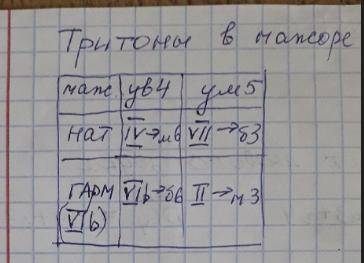 Тритоны в мажоре
маж ув4 ум5
НАТ IV→м6 VII→б3
ГАРМ VIb→б6 II→м3
(VIb)